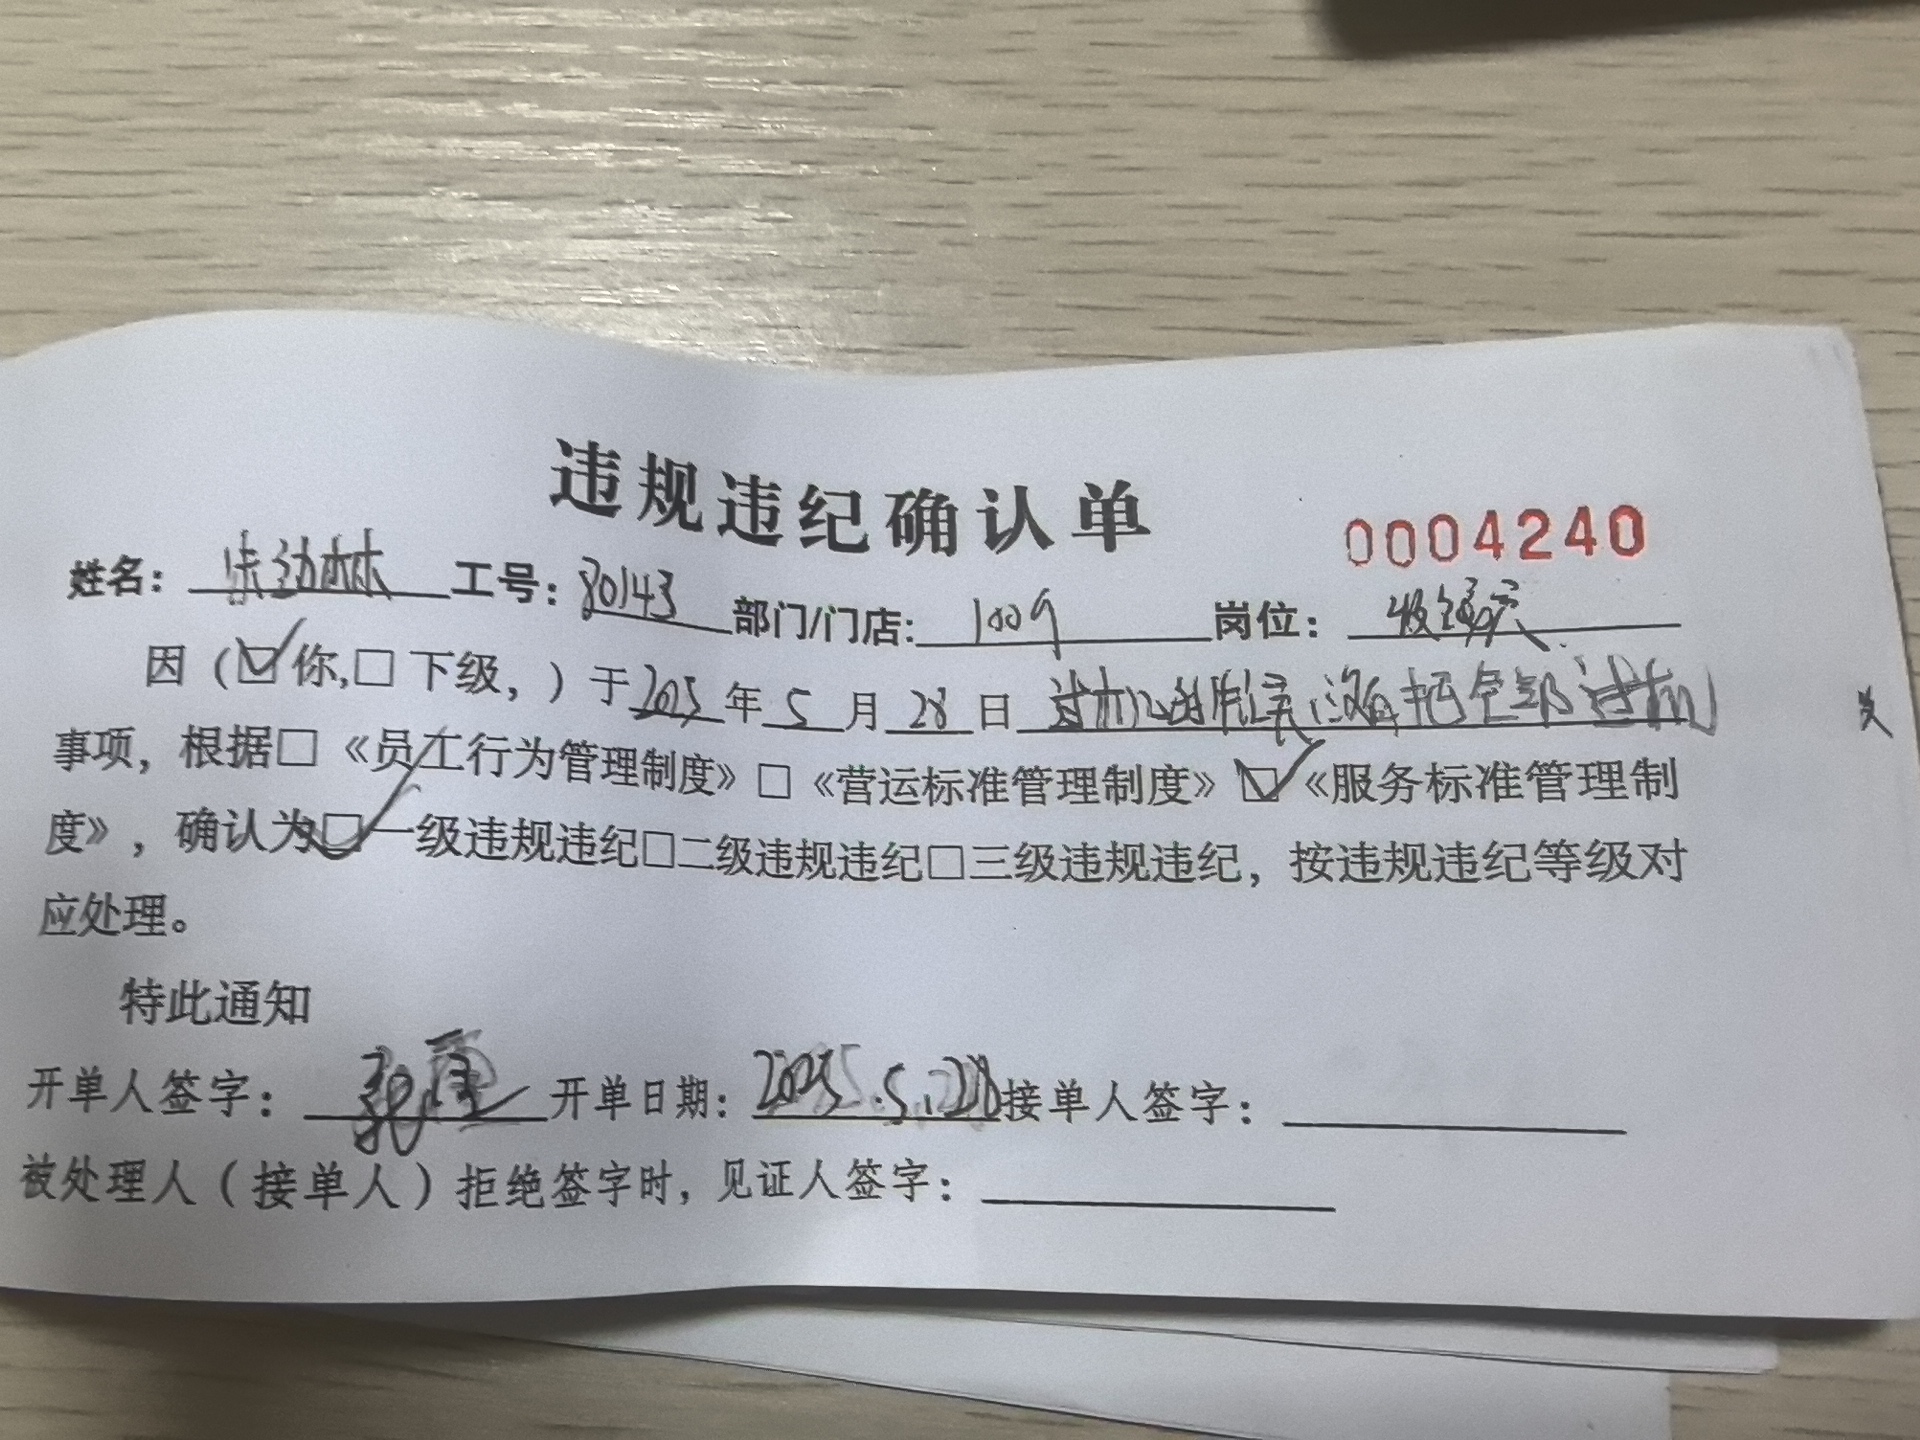 违规违纪确认单
0004240
姓名: 工号: 80143 部门/门店: 1009 岗位: 收银员
因 (☑你,□下级, ) 于2025年5月28日 过机的时候没有把全部过机
事项, 根据□《员工行为管理制度》□《营运标准管理制度》☑《服务标准管理制
度》, 确认为☑一级违规违纪□二级违规违纪□三级违规违纪, 按违规违纪等级对
应处理。
特此通知
开单人签字: 开单日期: 2025.5.28 接单人签字:
被处理人(接单人)拒绝签字时, 见证人签字: